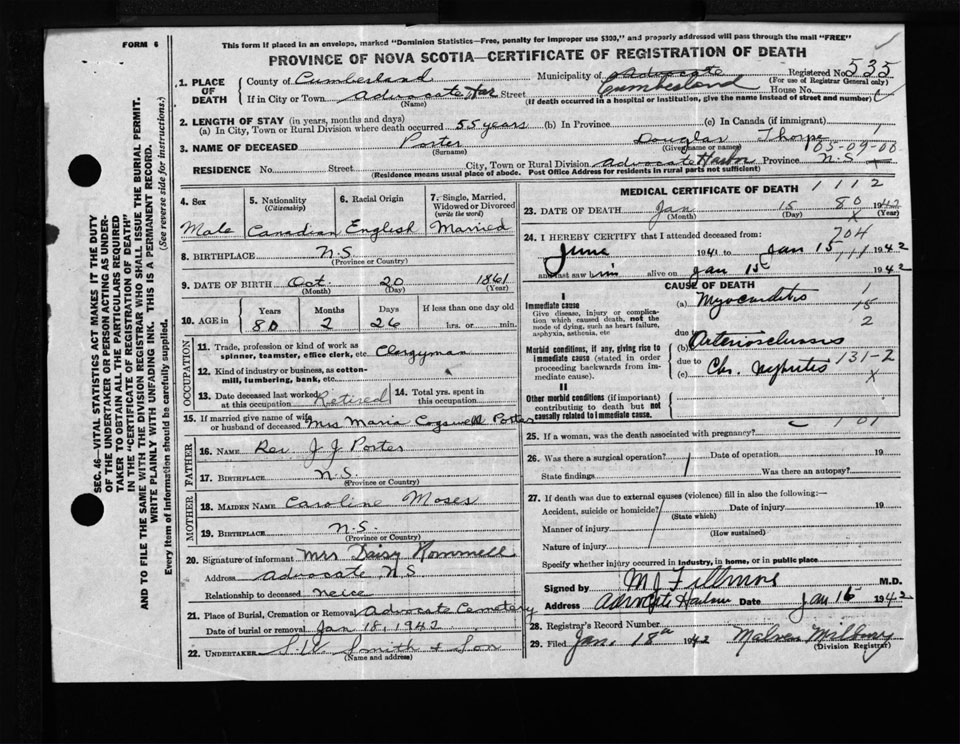 FORM 6
This form if placed in an envelope, marked "Dominion Statistics—Free, penalty for improper use $300," and properly addressed will pass through the mail "FREE"
PROVINCE OF NOVA SCOTIA—CERTIFICATE OF REGISTRATION OF DEATH
1. PLACE OF DEATH
County of Cumberland Municipality of Advocate Cumberland Registered No. 535
(For use of Registrar General only)
If in City or Town Advocate Har Street House No.
(Name) (If death occurred in a hospital or institution, give the name instead of street and number)
2. LENGTH OF STAY (in years, months and days)
(a) In City, Town or Rural Division where death occurred 55 years (b) In Province (c) In Canada (if immigrant)
3. NAME OF DECEASED Porter Douglas Thorpe
(Surname) (Given name or names) 105-09-00
RESIDENCE No. Street City, Town or Rural Division Advocate Harbor Province N.S.
(Residence means usual place of abode. Post Office Address for residents in rural parts not sufficient)
4. Sex
Male
5. Nationality (Citizenship)
Canadian
6. Racial Origin
English
7. Single, Married, Widowed or Divorced (write the word)
Married
8. BIRTHPLACE N.S.
(Province or Country)
9. DATE OF BIRTH Oct. 20 1861
(Month) (Day) (Year)
10. AGE in Years Months Days If less than one day old
80 2 26 hrs. or min.
OCCUPATION
11. Trade, profession or kind of work as spinner, teamster, office clerk, etc. Clergyman
12. Kind of industry or business, as cotton-mill, lumbering, bank, etc.
13. Date deceased last worked at this occupation Retired
14. Total yrs. spent in this occupation
15. If married give name of wife or husband of deceased Mrs Maria Cogswell Porter
FATHER
16. NAME Rev J. J. Porter
17. BIRTHPLACE N.S.
(Province or Country)
MOTHER
18. MAIDEN NAME Caroline Moses
19. BIRTHPLACE N.S.
(Province or Country)
20. Signature of informant Mrs Daisy
Address Advocate N.S
Relationship to deceased neice
21. Place of Burial, Cremation or Removal Advocate Cemetary
Date of burial or removal Jan 18, 1942
22. UNDERTAKER Smith & Son
(Name and address)
MEDICAL CERTIFICATE OF DEATH 1112
23. DATE OF DEATH Jan 15 80 1942
(Month) (Day) X (Year)
24. I HEREBY CERTIFY that I attended deceased from: 704
June 1941 to Jan 15 1942
and last saw him alive on Jan 15 1942
CAUSE OF DEATH
I
Immediate cause
Give disease, injury or complication which caused death, not the mode of dying, such as heart failure, asphyxia, asthenia, etc
(a) Myocarditis
1
15
2
due to
Morbid conditions, if any, giving rise to immediate cause (stated in order proceeding backwards from immediate cause).
(b) Arteriosclerosis
due to
(c) Chr. Nephrites 131-2
X
II
Other morbid conditions (if important) contributing to death but not causally related to immediate cause.
25. If a woman, was the death associated with pregnancy?
26. Was there a surgical operation? Date of operation 19
State findings Was there an autopsy?
27. If death was due to external causes (violence) fill in also the following:—
Accident, suicide or homicide? Date of injury 19
(State which)
Manner of injury
(How sustained)
Nature of injury
Specify whether injury occurred in industry, in home, or in public place
Signed by M J Fillmore M.D.
Address Advocate Harbor Date Jan 16 1942
28. Registrar's Record Number
29. Filed Jan. 18th 1942
(Division Registrar)
SEC. 46—VITAL STATISTICS ACT MAKES IT THE DUTY
OF THE UNDERTAKER OR PERSON ACTING AS UNDER-
TAKER TO OBTAIN ALL THE PARTICULARS REQUIRED
IN THE "CERTIFICATE OF REGISTRATION OF DEATH"
AND TO FILE THE SAME WITH THE DIVISION REGISTRAR WHO SHALL ISSUE THE BURIAL PERMIT.
WRITE PLAINLY WITH UNFADING INK. THIS IS A PERMANENT RECORD.
Every item of information should be carefully supplied. (See reverse side for instructions.)